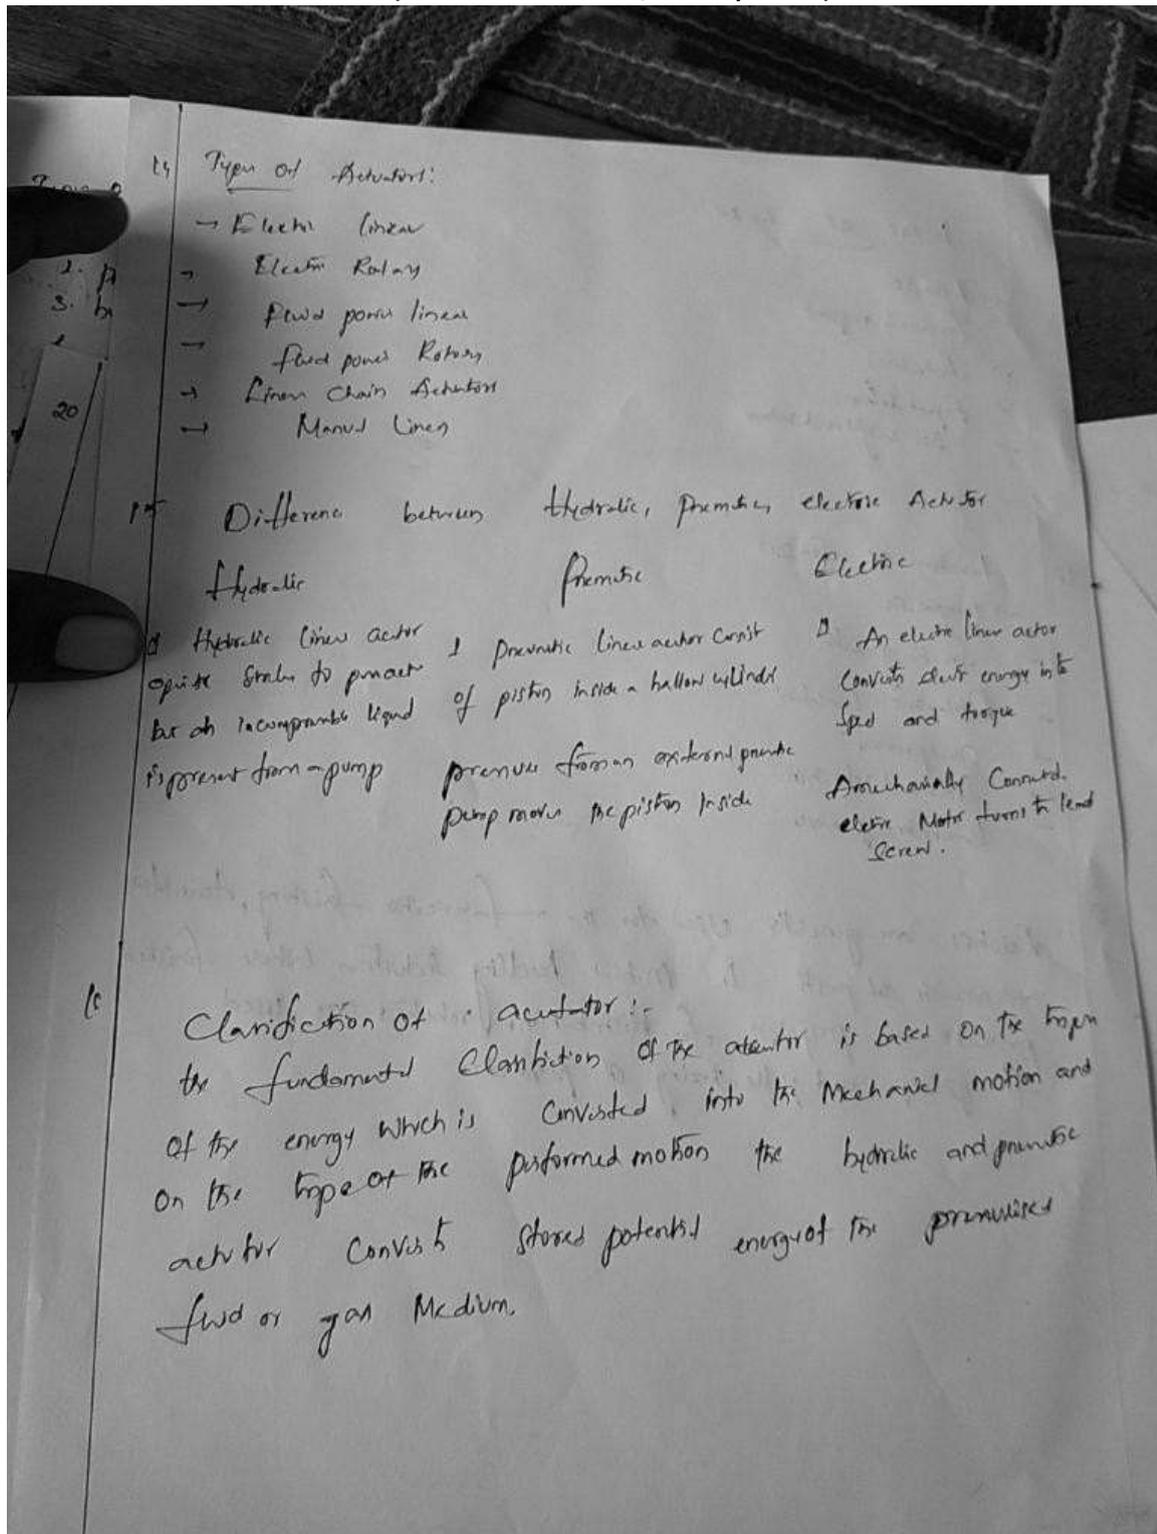 Types of Actuators:
→ Electric linear
→ Electric Rotary
→ fluid power linear
→ fluid power Rotary
→ Linear Chain Actuators
→ Manual Linear
Difference between Hydralic, pnematic, electric Actutor
Hydralic Pnematic Electric
Hydralic linear actor
opuite to
but an liquid
is present from a pump
1 Pneumatic linear actor Consist
of piston inside a hallow cylinder
pressure from an external pneumatic
pump moves the piston inside
An electric linear actor
Converts energy into
Sped and torque
A mechanically Connected
eletric Motor turns the lead
Screw.
Classification of acutator :-
the fundamental Classification of the is based on the
of the energy which is Converted into the Mechanical motion and
on the type of the performed motion the hydralic and pneumatic
actutor Converts stored potential energy of the
fluid or gas Medium.
3.
20